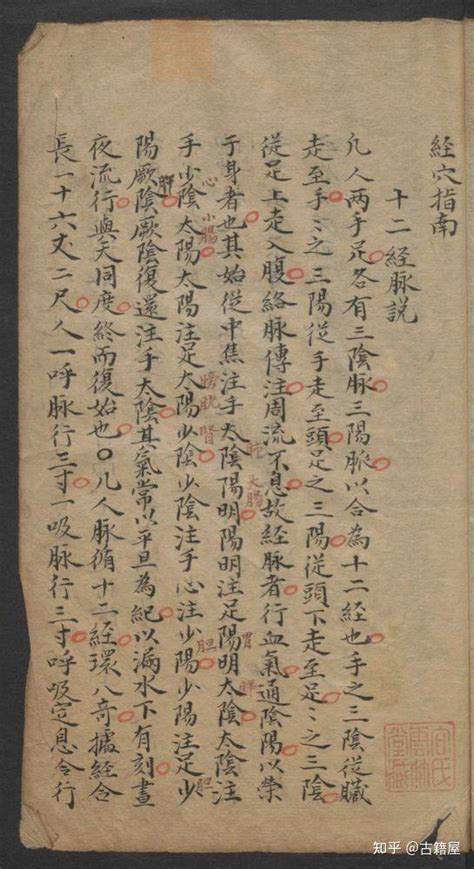 經穴指南
十二經脉說
凡人兩手足各有三陰脉三陽脈以合為十二經也手之三陰從臟
走至手〻之三陽從手走至頭足之三陽從頭下走至足〻之三陰
從足上走入腹絡脉傳注周流不息故經脉者行血氣通陰陽以榮
于身者也其始從中焦注手太陰陽明陽明注足陽明太陰太陰注
大腸
胃
脾
手少陰太陽太陽注足太陽少陰少陰注手心注少陽少陽注足少
心
小腸
膀胱
腎
胆
胆
陽厥陰厥陰復還注手太陰其氣常以平旦為紀以漏水下有刻晝
夜流行與天同度終而復始也〇凡人脉循十二經環八奇據經合
長一十六丈二尺人一呼脉行三寸一吸脉行三寸呼吸定息合行
知乎 @古籍屋